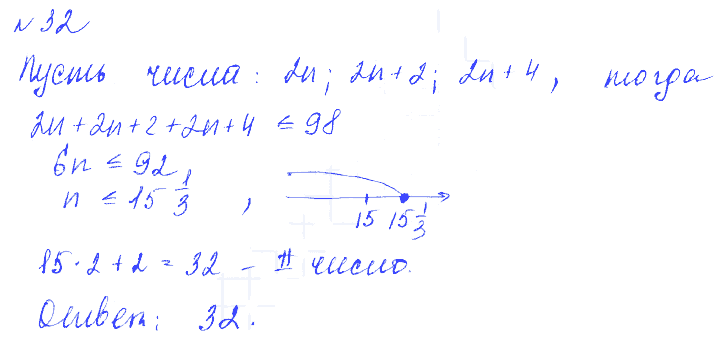 №32
Пусть числа: 2n; 2n+2; 2n+4, тогда
2n+2n+2+2n+4 ≤ 98
6n ≤ 92
n ≤ 15 1/3 ,
15 15 1/3
15·2+2=32 – II число.
Ответ: 32.